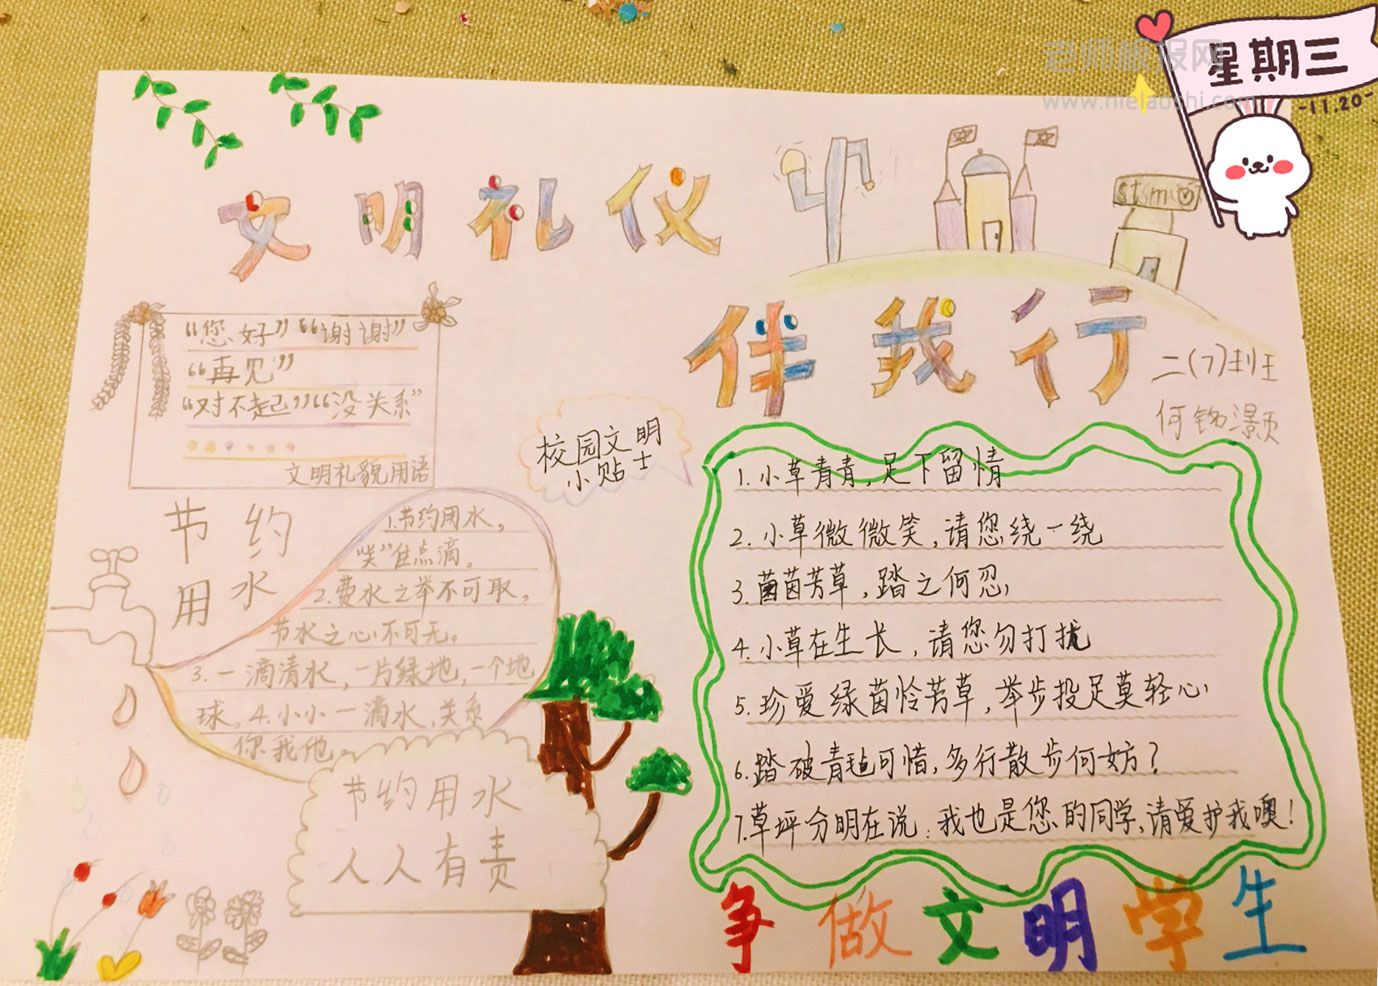 老师板报网
www.nielaoshi.com
星期三
-11.20-
文明礼仪
伴我行
二(7)班
“您好”“谢谢”
“再见”
“对不起”“没关系”
文明礼貌用语
校园文明
小贴士
节约
用水
1.节约用水,
“从”点滴。
2.费水之举不可取,
节水之心不可无。
3.一滴清水,一片绿地,一个地
球。4.小小一滴水,关系
你我他。
节约用水
人人有责
1.小草青青,足下留情
2.小草微微笑,请您绕一绕
3.茵茵芳草,踏之何忍
4.小草在生长,请您勿打扰
5.珍爱绿茵怜芳草,举步投足莫轻心
6.踏破青毡可惜,多行散步何妨?
7.草坪分明在说:我也是您的同学,请爱护我噢!
争做文明学生